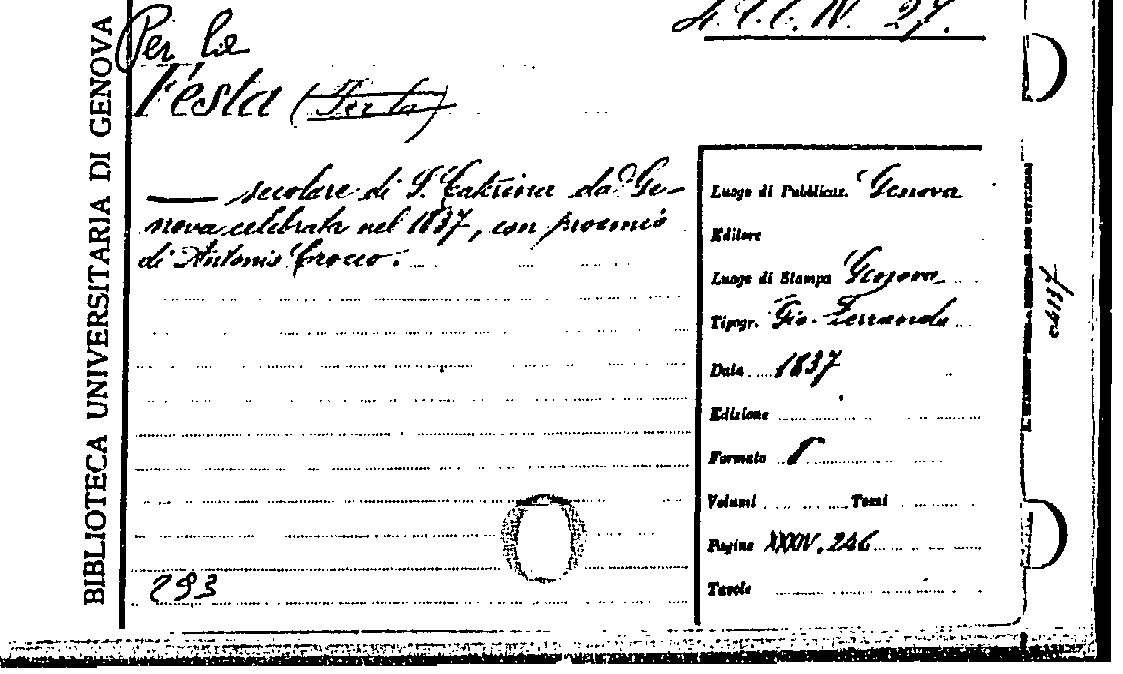 BIBLIOTECA UNIVERSITARIA DI GENOVA
Per la
N. 27.
Festa (Per la)
—— secolare di S. Catterina da Ge-
nova celebrata nel 1837, con proemio
di Antonio Crocco.
293
Luogo di Pubblicaz. Genova
Editore
Luogo di Stampa Genova
Tipogr. Gio. Ferrando
Data 1837
Edizione
Formato 8
Volumi Tomi
Pagine XXXIV, 246
Tavole